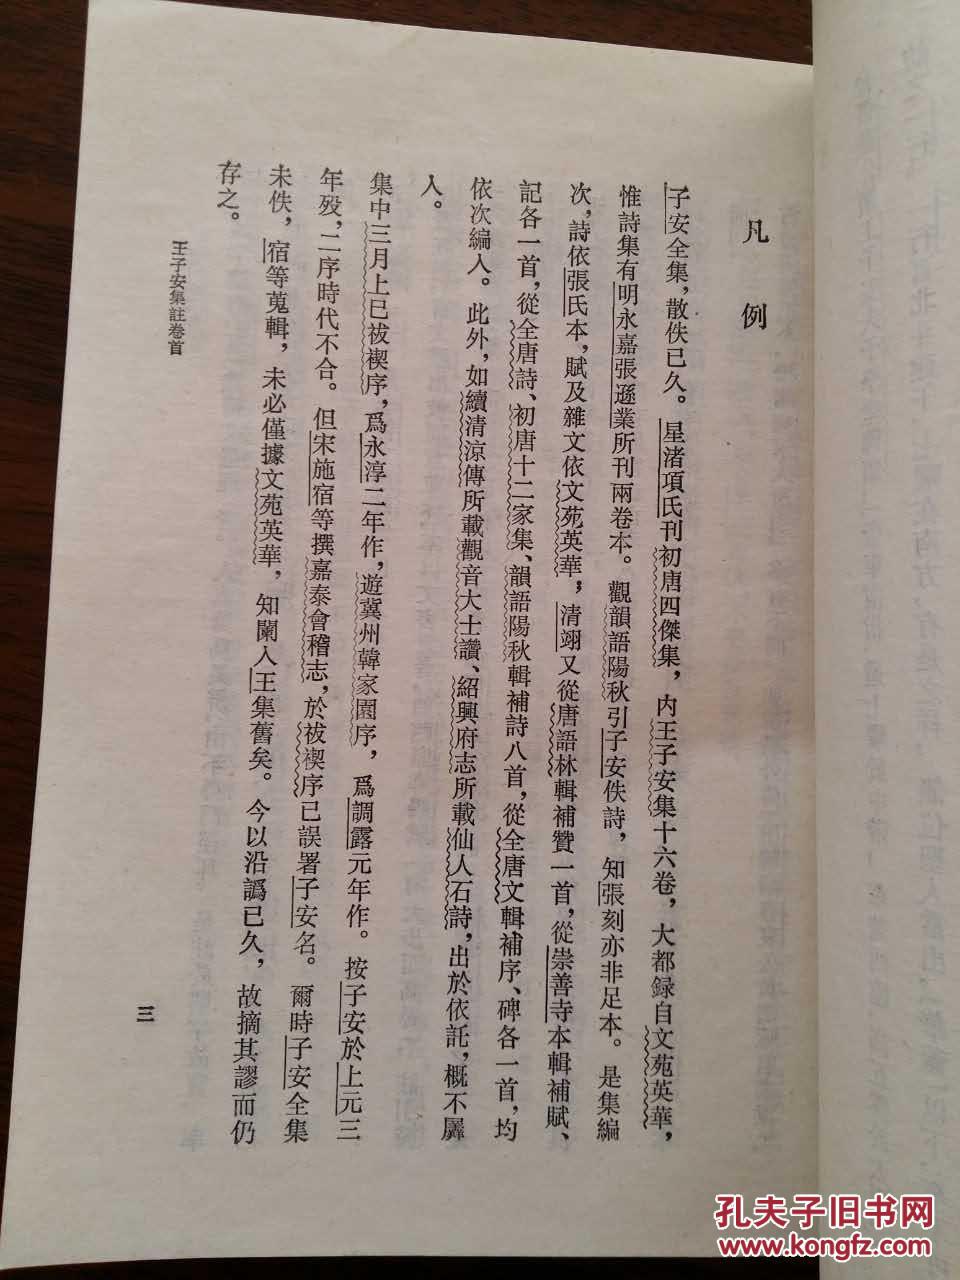 凡例
子安全集，散佚已久。星渚項氏刊初唐四傑集，內王子安集十六卷，大都録自文苑英華，
惟詩集有明永嘉張遜業所刊兩卷本。觀韻語陽秋引子安佚詩，知張刻亦非足本。是集編
次，詩依張氏本，賦及雜文依文苑英華，清翊又從唐語林輯補贊一首，從崇善寺本輯補賦、
記各一首，從全唐詩、初唐十二家集、韻語陽秋輯補詩八首，從全唐文輯補序、碑各一首，均
依次編入。此外，如續清涼傳所載觀音大士讚、紹興府志所載仙人石詩，出於依託，概不羼
入。
集中三月上巳祓禊序，爲永淳二年作，遊冀州韓家園序，爲調露元年作。按子安於上元三
年歿，二序時代不合。但宋施宿等撰嘉泰會稽志，於祓禊序已誤署子安名。爾時子安全集
未佚，宿等蒐輯，未必僅據文苑英華，知闌入王集舊矣。今以沿譌已久，故摘其謬而仍
存之。
王子安集註卷首
三
孔夫子旧书网
www.kongfz.com